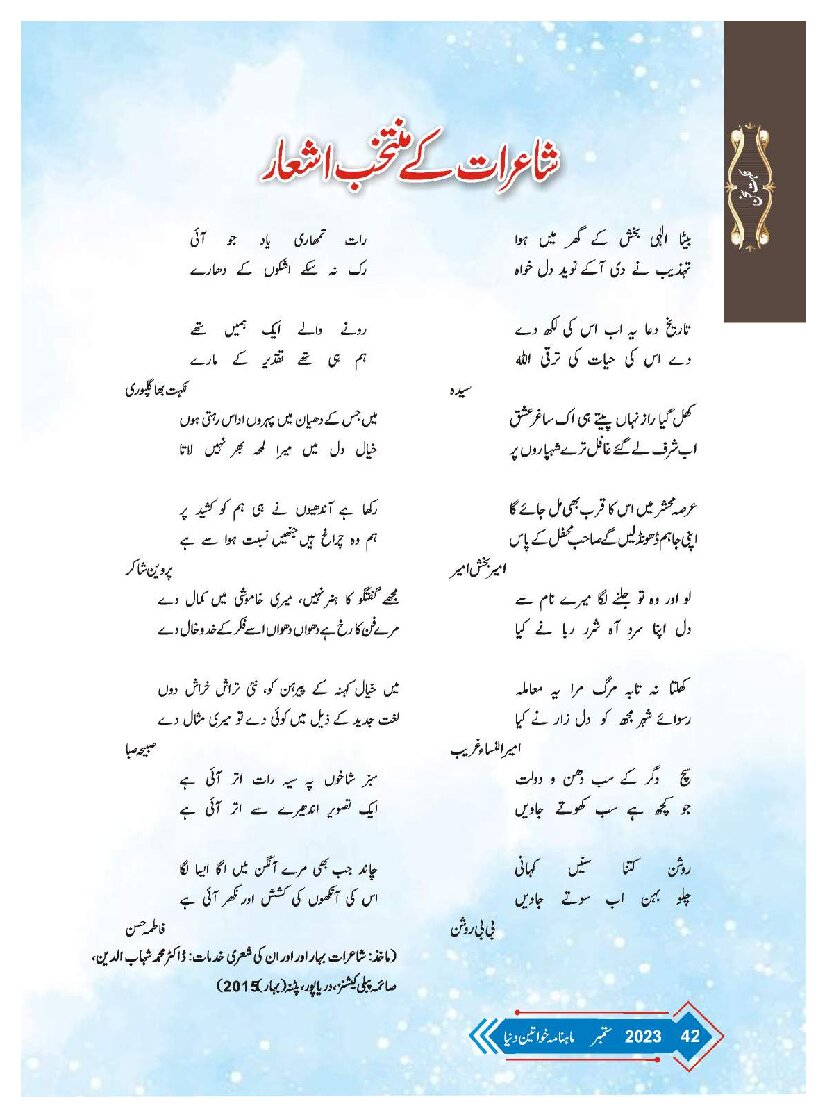 نکہت سخن
شاعرات کے منتخب اشعار
بیٹا الٰہی بخش کے گھر میں ہوا
تہذیب نے دی آکے نوید دل خواہ
تاریخ دعا یہ اب اس کی لکھ دے
دے اس کی حیات کی ترقی اللہ
سیدہ
کھل گیا راز نہاں پیتے ہی اک ساغر عشق
اب شرف لے گئے غافل ترے شہپاروں پر
عرصہ محشر میں اس کا قرب بھی مل جائے گا
اپنی جا ہم ڈھونڈلیں گے صاحب محفل کے پاس
امیر بخش امیر
لو اور وہ تو جلنے لگا میرے نام سے
دل اپنا سرد آہ شرر ربا نے کیا
کھلتا نہ تابہ مرگ مرا یہ معاملہ
رسوائے شہر مجھ کو دل زار نے کیا
امیر النساء غریب
سچ دگر کے سب دھن و دولت
جو کچھ ہے سب کھوتے جاویں
روشن کتنا سنیں کہانی
چلو بہن اب سوتے جاویں
بی بی روشن
رات تمھاری یاد جو آئی
رک نہ سکے اشکوں کے دھارے
رونے والے ایک ہمیں تھے
ہم ہی تھے تقدیر کے مارے
نکہت بھاگلپوری
میں جس کے دھیان میں پہروں اداس رہتی ہوں
خیال دل میں میرا لمحہ بھر نہیں لاتا
رکھا ہے آندھیوں نے ہی ہم کو کشید پر
ہم وہ چراغ ہیں جنھیں نسبت ہوا سے ہے
پروین شاکر
مجھے گفتگو کا ہنر نہیں، میری خاموشی میں کمال دے
مرے فن کا رخ ہے دھواں دھواں اسے فکر کے خد و خال دے
میں خیال کہنہ کے پیرہن کو، نئی تراش خراش دوں
لغت جدید کے ذیل میں کوئی دے تو میری مثال دے
صبیحہ صبا
سبز شاخوں پہ سیہ رات اتر آئی ہے
ایک تصویر اندھیرے سے اتر آئی ہے
چاند جب بھی مرے آنگن میں اگا ایسا لگا
اس کی آنکھوں کی کشش اور نکھر آئی ہے
فاطمہ حسن
(ماخذ: شاعرات بہار اور اور ان کی شعری خدمات: ڈاکٹر محمد شہاب الدین،
صائمہ پبلی کیشنز، دریاپور، پٹنہ (بہار) 2015)
ماہنامہ خواتین دنیا ستمبر 2023 42